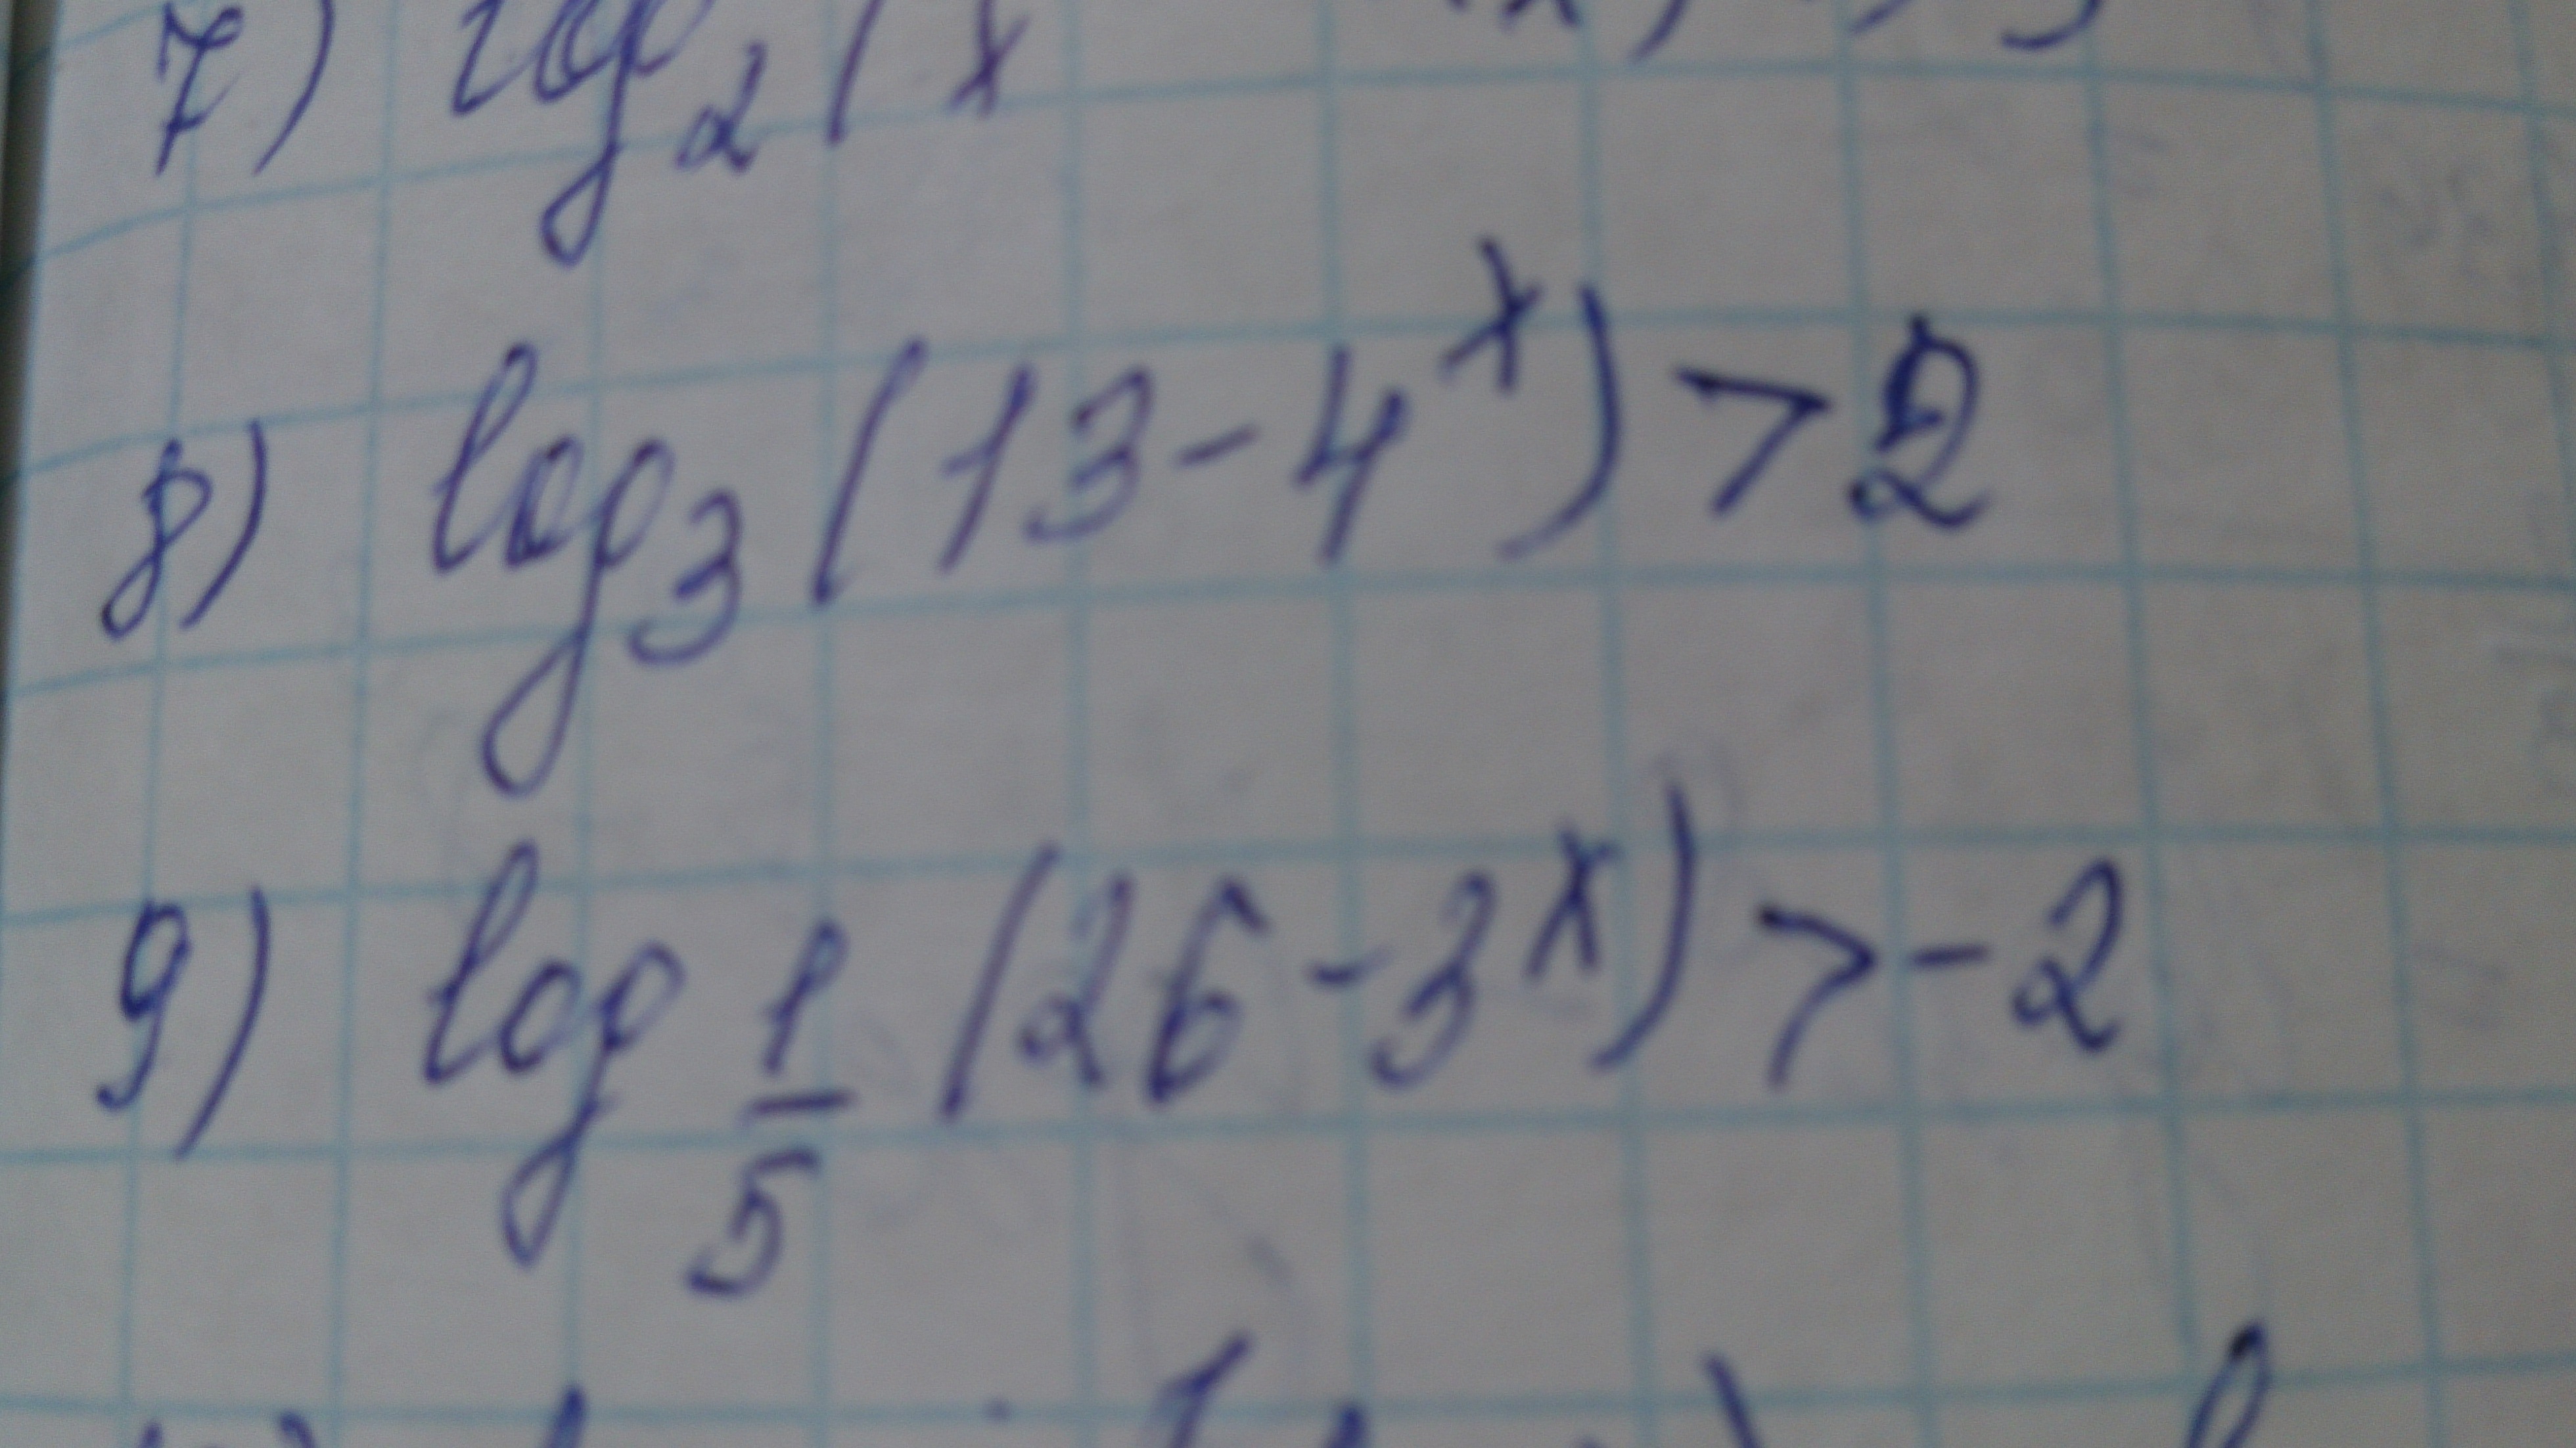 7) log₂(x
8) log₃(13-4ˣ)>2
9) log 1/5 (26-3ˣ)>-2